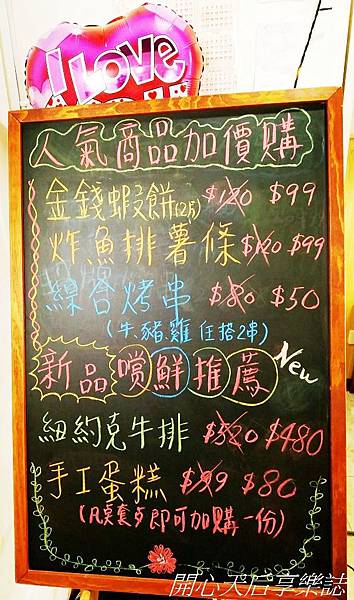 I
LOVE
人氣商品加價購
金錢蝦餅(2片) $120 $99
炸魚排薯條 $120 $99
綜合烤串 $80 $50
(牛.豬.雞 任搭2串)
新品嚐鮮推薦 New
紐約克牛排 $520 $480
手工蛋糕 $99 $80
(凡桌套歺即可加購一份)
開心天后享樂誌